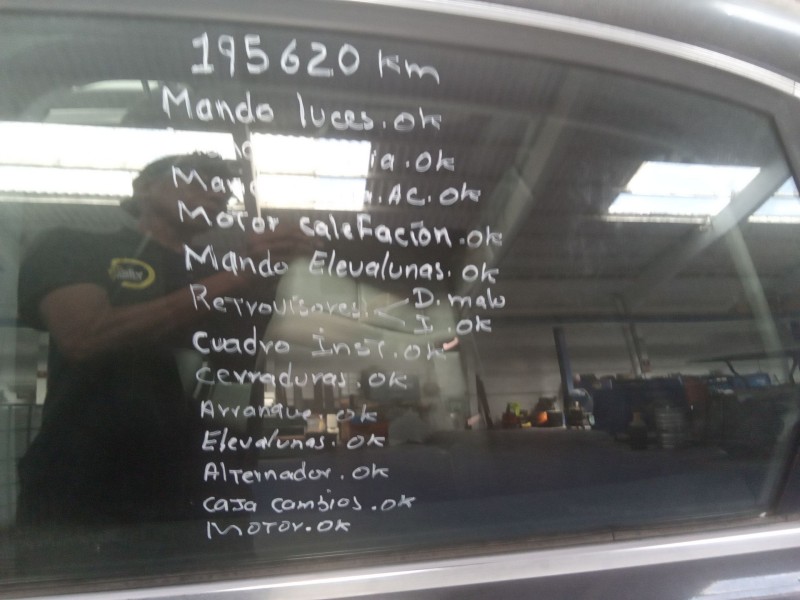 195620 Km
Mando luces.ok
ia.ok
.AC.ok
Motor calefacíon.ok
Mando Elevalunas.ok
Retrovisores D.malo
I.ok
Cuadro inst.ok
Cerraduras.ok
Arranque.ok
Elevalunas.ok
Alternador.ok
Caja cambios.ok
Motor.ok